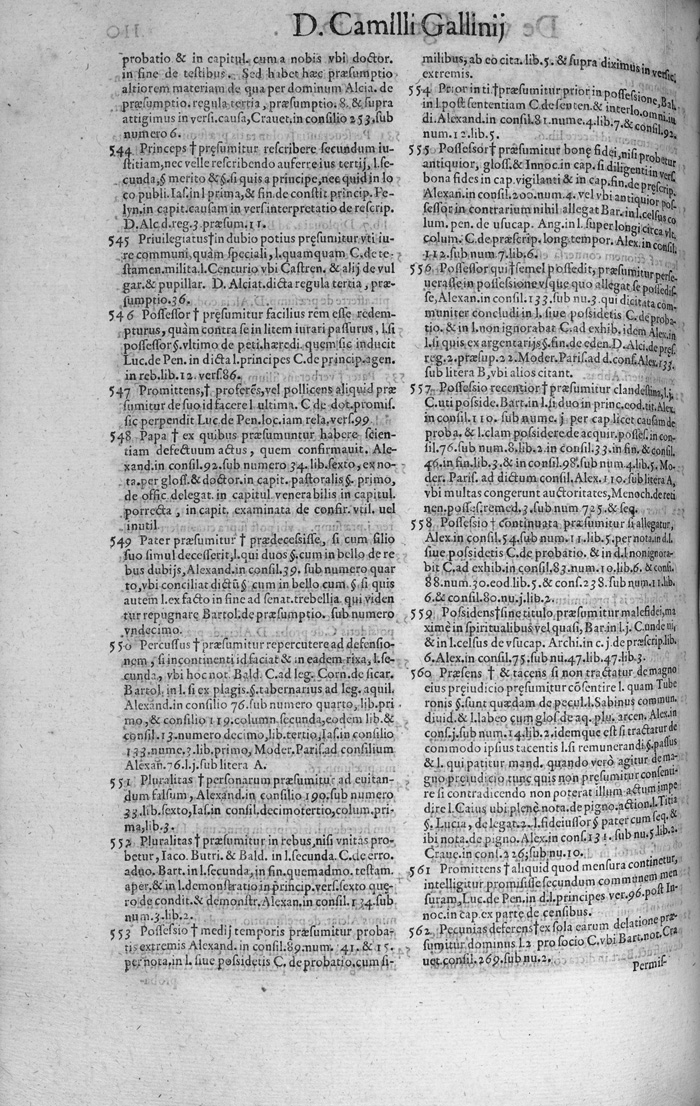 D. Camilli Gallinij
probatio & in capitul. cum a nobis vbi doctor.
in fine de testibus. Sed habet hæc præsumptio
altiorem materiam de qua per dominum Alcia. de
præsumptio. regula tertia, præsumptio. 8. & supra
attigimus in versi. causa, Crauet. in consilio 253. sub
numero 6.
544 Princeps † præsumitur rescribere secundum iu-
stitiam, nec velle rescribendo auferre ius tertij, l. se-
cunda, § merito & §. si quis a principe, nec quid in lo
co publi. Ias. in l prima, & fin. de constit princip. Fe-
lyn. in capit. causam in vers interpretatio de rescrip.
D. Alc d. reg. 3. præsum. 11.
545 Priuilegiatus† in dubio potius pręsumitur vti iu-
re communi, quàm speciali, l. quamquam C. de te-
stamen. milita. l. Centurio vbi Castren. & alij de vul
gar. & pupillar. D. Alciat. dicta regula tertia, præ-
sumptio. 36.
546 Possessor † pręsumitur facilius rem esse redem-
pturus, quàm contra se in litem iurari passurus, l. si
possessor §. vltimo de peti. hæredi. quem sic inducit
Luc. de Pen. in dicta l. principes C. de princip. agen.
in reb. lib. 12. vers. 86.
547 Promittens, †, proferēs, vel pollicens aliquid præ
sumitur de suo id facere l ultima. C de dot. promis.
sic perpendit Luc de Pen. loc. iam rela, vers. 99.
548 Papa † ex quibus præsumuntur habere scien-
tiam defectuum actus, quem confirmauit. Ale-
xand. in consil. 92. sub numero 34. lib. sexto, ex no-
ta. per gloss. & doctor. in capit. pastoralis §. primo,
de offic delegat. in capitul venerabilis in capitul.
porrecta, in capit. examinata de confir. vtil. uel
inutil.
549 Pater præsumitur † prædecessisse, si cum filio
suo simul decesserit, l. qui duos §. cum in bello de re
bus dubijs, Alexand. in consil. 39. sub numero quar
to, vbi conciliat dictū §. cum in bello cum §. si quis
autem l. ex facto in fine ad senat. trebellia. qui viden
tur repugnare Bartol. de præsumptio. sub numero
vndecimo.
550 Percussus † præsumitur repercutere ad defensio-
nem, si incontinenti id faciat & in eadem rixa, l. se-
cunda, vbi hoc not. Bald. C. ad leg. Corn. de sicar.
Bartol. in l. si ex plagis. §. tabernarius ad leg. aquil.
Alexand. in consilio 76. sub numero quarto, lib. pri
mo, & consilio 119. column secunda, eodem lib. &
consil. 13. numero decimo, lib. tertio, Ias. in consilio
133. nume. 7. lib. primo, Moder. Paris. ad consilium
Alexan. 76. l. j. sub litera A.
551 Pluralitas † personarum præsumitur ad euitan-
dum falsum, Alexand. in consilio 190. sub numero
33. lib. sexto, Ias. in consil. decimotertio, colum. pri-
ma, lib. 3.
552 Pluralitas † præsumitur in rebus, nisi vnitas pro-
betur, Iaco. Butri. & Bald. in l. secunda. C. de erro.
aduo. Bart. in l. secunda, in fin. quemadmo. testam.
aper. & in l. demonstratio in princip. vers. sexto que-
ro de condit. & demonstr. Alexan. in consil. 134. sub
num. 3. lib. 2.
553 Possessio † medij temporis præsumitur proba-
tis extremis Alexand. in consil. 89. num. 41. & 15.
per nota. in l. siue possidetis C. de probatio. cum si-
milibus, ab eo cita. lib. 5. & supra diximus in versic.
extremis.
554 Prior in ti † præsumitur prior in possessione, Bal.
in l. post sententiam C. de senten. & interlo. omni. iu
di. Alexand. in consil. 81. nume. 4. lib. 7. & consil. 92.
num. 12. lib. 5.
555 Possessor† præsumitur bonę fidei, nisi probetur
antiquior, gloss. & Innoc. in cap. si diligenti in vers.
bona fides in cap. vigilanti & in cap. fin. de præscrip.
Alexan. in consil. 200. num. 4. vel vbi antiquior pos-
sessor in contrarium nihil allegat Bar. in l. celsus co
lum. pen. de usucap. Ang. in l. super longi circa vlt.
colum. C. de præscrip. long. tempor. Alex. in consil.
112. sub num. 7. lib. 6.
556 Possessor qui † semel possedit, præsumitur perse-
uerasse in possessione vsque quo allegat se possedis-
se, Alexan. in consil. 133. sub nu. 3. qui dicit ita com-
muniter concludi in l. siue possidetis C. de proba-
tio. & in l. non ignorabat C. ad exhib. idem Alex. in
l. si quis. ex argentarijs §. fin. de eden. D. Alci. de præs.
reg. 2. præsup. 22. Moder. Paris. ad d. cons. Alex. 133.
sub litera B, vbi alios citant.
557 Possessio recentior † præsumitur clandestina, l. j.
C. uti posside. Bart. in l. si duo in princ. eod. tit. Alex.
in consil. 110. sub nume. j per cap. licet causam de
proba. & l. clam possidere de acquir. posses. in con-
sil. 76. sub num. 8. lib. 2. in consil. 33. in fin. & consil.
46. in fin. lib. 3. & in consil. 98. sub num. 4. lib. 5. Mo-
der. Paris. ad dictum consil. Alex. 110. sub litera A,
vbi multas congerunt auctoritates, Menoch. de reti
nen. posses. remed. 3. sub num 725. & seq.
558 Possessio † continuata præsumitur si allegatur,
Alex. in consil. 54. sub num. 11. lib. 5. per nota. in d. l.
siue possidetis C. de probatio. & in d. l non ignora-
bat C. ad exhib. in consil. 83. num. 10. lib. 6. & consil.
88. num. 30. eod lib. 5. & cons. 238. sub num. 11. lib.
6. & consil. 80. nu. j. lib. 2.
559 Possidens † sine titulo, præsumitur malefidei, ma
ximè in spiritualibus vel quasi, Bar. in l. j. C. unde ui,
& in l. celsus de vsucap. Archi. in c. j. de præscrip. lib.
6. Alex. in consil. 75. sub nu. 47. lib. 47. lib. 3.
560 Præsens † & tacens si non tractatur de magno
eius præiudicio pręsumitur cōsentire l. quam Tube
ronis §. sunt quædam de pecul. l. Sabinus commun.
diuid. & l. labeo cum glos. de aq. plu. arcen. Alex. in
cons. j. sub num. 14. lib. 2. idemque est si tractatur de
commodo ipsius tacentis l. si remunerandi §. passus
& l. qui patitur mand. quando verò agitur de ma-
gno preiudicio tunc quis non presumitur consenti-
re si contradicendo non poterat illum actum impe
dire l. Caius ubi plenè nota. de pigno. action. l. Titia
§. Lucia, de legat. 2. l. fideiussor § pater cum seq. &
ibi nota. de pigno. Alex. in cons. 131. sub nu. 5. lib. 2.
Craue. in cons. 226; sub nu. 10.
561 Promittens † aliquid quod mensura continetur,
intelligitur promisisse secundum communem men
suram, Luc. de Pen. in d. l. principes ver. 96. post In-
noc. in cap. ex parte de censibus.
562 Pecunias deferens† ex sola earum delatione præ-
sumitur dominus l. 2 pro socio C. vbi Bart. not. Cra
uet. consil. 269. sub nu. 2.
Permis-